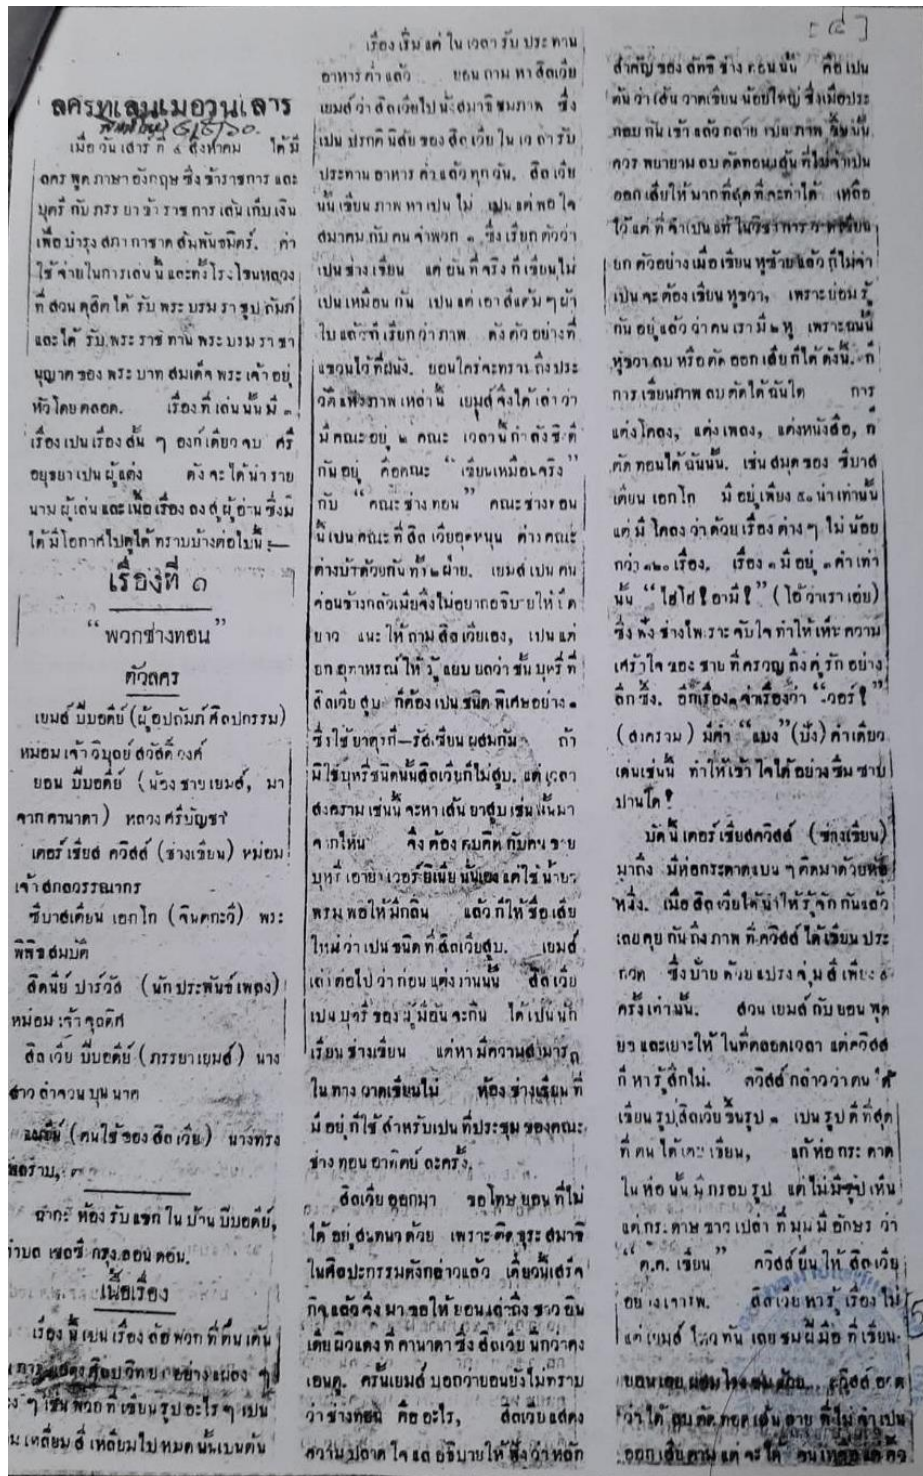 [๘]
ลครที่เล่นเมื่อวันเสาร์
เมื่อวันเสาร์ ที่ ๔ สิงหาคม ได้มี
ลคร พูด ภาษา อังกฤษ ซึ่ง ข้าราชการ และ
บุตรี กับ ภรรยา ข้า ราช การ เล่น เก็บ เงิน
เพื่อ บำรุง สภา กาชาด สัมพันธมิตร์. ค่า
ใช้ จ่าย ใน การ เล่น นี้ และ ทั้ง โรง โขน หลวง
ที่ สวน ดุสิต ได้ รับ พระ บรม รา ชู ป ถัมภ์
และ ได้ รับ พระ ราช ทาน พระ บรม รา ชา
นุญาต ของ พระ บาท สมเด็จ พระ เจ้า อยู่
หัว โดย ตลอด. เรื่อง ที่ เล่น นั้น มี ๓
เรื่อง เปน เรื่อง สั้น ๆ องก์ เดียว จบ ศรี
อยุธยา เปน ผู้ แต่ง ดัง จะ ได้ นำ ราย
นาม ผู้ เล่น และ เนื้อ เรื่อง ลง สู่ ผู้ อ่าน ซึ่ง มิ
ได้ มี โอกาศ ไป ดู ได้ ทราบ บ้าง ต่อ ไป นี้ :—
เรื่องที่ ๑
“พวกช่างทอน”
ตัวลคร
เยมส์ บีบอดีย์ (ผู้อุปถัมภ์ ศิลปกรรม)
หม่อม เจ้า วิบูลย์ สวัสดิ์ วงศ์
ยอน บีบอดีย์ (น้อง ชาย เยมส์, มา
จาก คานาดา) หลวง ศรีบัญชา
เตอร์ เชียส ควิสส์ (ช่างเขียน) หม่อม
เจ้า สกลวรรณากร
ซิบาสเตียน เอกโก (จินตกะวี) พระ
พิพิธ สมบัติ
สิดนีย์ ปาร์วัส (นัก ประพันธ์ เพลง)
หม่อม เจ้า จุลดิศ
สิลเวีย บีบอดีย์ (ภรรยา เยมส์) นาง
สาว ลำจวน บุน นาค
(คนใช้ ของ สิลเวีย) นาง ทรง
ฉาก: ห้อง รับ แขก ใน บ้าน บีบอดีย์,
ตำบล เชลซี กรุง ลอน ดอน.
เนื้อเรื่อง
เรื่อง นี้ เปน เรื่อง ล้อ พวก ที่ ตื่น เต้น
การ แสดง ศิลป วิทยา อย่าง แผลง ๆ
ๆ เช่น พวก ที่ เขียน รูป อะไร ๆ เปน
เหลี่ยม สี่ เหลี่ยม ไป หมด นั้น เปน ต้น
เรื่อง เริ่ม แต่ ใน เวลา รับ ประ ทาน
อาหาร ค่ำ แล้ว ยอน ถาม หา สิลเวีย
เยมส์ ว่า สิลเวีย ไป นั่ง สมาธิ ชมภาพ ซึ่ง
เปน ปรกติ นิสัย ของ สิล เวีย ใน เว ลา รับ
ประทาน อาหาร ค่ำ แล้ว ทุก วัน. สิล เวีย
นั้น เขียน ภาพ หา เปน ไม่ เปน แต่ พอ ใจ
สมาคม กับ คน จำพวก ๑ ซึ่ง เรียก ตัว ว่า
เปน ช่าง เขียน แต่ อัน ที่ จริง ก็ เขียน ไม่
เปน เหมือน กัน เปน แต่ เอา สี แต้ม ๆ ผ้า
ใบ แล้ว ก็ เรียก ว่า ภาพ ดัง ตัว อย่าง ที่
แขวน ไว้ ที่ ฝนัง. ยอน ใคร่ จะ ทราบ ถึง ประ
วัติ แห่ง ภาพ เหล่า นี้ เยมส์ จึง ได้ เล่า ว่า
มี คณะ อยู่ ๒ คณะ เวลา นี้ กำลัง ชิง ดี
กัน อยู่ คือ คณะ “เขียน เหมือน จริง”
กับ “คณะ ช่าง ทอน” คณะ ช่าง ทอน
นี้ เปน คณะ ที่ สิล เวีย อุดหนุน ต่าง คณะ
ต่าง บ้า ด้วย กัน ทั้ง ๒ ฝ่าย. เยมส์ เปน คน
ค่อน ข้าง กลัว เมีย จึง ไม่ อยาก อธิบาย ให้ ยืด
ยาว แนะ ให้ ถาม สิลเวีย เอง, เปน แต่
ยก อุทาหรณ์ ให้ รู้ แยบ ยล ว่า ชั้น บุหรี่ ที่
สิลเวีย สูบ ก็ ต้อง เปน ชนิด พิเศษ อย่าง ๑
ซึ่ง ใช้ ยา ตุรกี—รัสเซียน ผสม กัน ถ้า
มิ ใช่ บุหรี่ ชนิด นั้น สิลเวีย ก็ ไม่ สูบ. แต่ เวลา
สงคราม เช่น นี้ จะ หา เส้น ยา สูบ เช่น นั้น มา
จาก ไหน จึง ต้อง คบ คิด กับ คน ขาย
บุหรี่ เอา ยา เวอร์ยิเนีย นั้น เอง แต่ ใช้ น้ำ ยา
พรม พอ ให้ มี กลิ่น แล้ว ก็ ให้ ชื่อ เสีย
ใหม่ ว่า เปน ชนิด ที่ สิลเวีย สูบ. เยมส์
เล่า ต่อ ไป ว่า ก่อน แต่ง งาน นั้น สิลเวีย
เปน บุตรี ของ ผู้ มี อัน จะ กิน ได้ เปน นัก
เรียน ช่าง เขียน แต่ หา มี ความ สามารถ
ใน ทาง วาด เขียน ไม่ ห้อง ช่าง เขียน ที่
มี อยู่ ก็ ใช้ สำหรับ เปน ที่ ประชุม ของ คณะ
ช่าง ทอน อาทิตย์ ละ ครั้ง.
สิลเวีย ออก มา ขอ โทษ ยอน ที่ ไม่
ได้ อยู่ สนทนา ด้วย เพราะ ติด ธุระ สมาธิ
ใน ศิลปะ กรรม ดัง กล่าว แล้ว เดี๋ยว นี้ เสร็จ
กิจ แล้ว จึง มา ขอ ให้ ยอน เล่า ถึง ชาว อิน
เดีย ผิว แดง ที่ คานาดา ซึ่ง สิลเวีย นึก ว่า คง
เอนดู. ครั้น เยมส์ บอก ว่า ยอน ยัง ไม่ ทราบ
ว่า ช่าง ทอน คือ อะไร, สิลเวีย แสดง
ความ ปลาด ใจ แล อธิบาย ให้ ฟัง ว่า หลัก
สำคัญ ของ ลัทธิ ช่าง ทอน นั้น คือ เปน
ต้น ว่า เส้น วาด เขียน น้อย ใหญ่ ซึ่ง เมื่อ ประ
กอบ กัน เข้า แล้ว กลาย เปน ภาพ ขึ้น นั้น
ควร พยายาม ลบ ตัด ทอน เส้น ที่ ไม่ จำ เปน
ออก เสีย ให้ มาก ที่ สุด ที่ จะ ทำ ได้ เหลือ
ไว้ แต่ ที่ จำ เปน แท้ ใน วิชา การ วาด เขียน
ยก ตัว อย่าง เมื่อ เขียน หู ซ้าย แล้ว ก็ ไม่ จำ
เปน จะ ต้อง เขียน หู ขวา, เพราะ ย่อม รู้
กัน อยู่ แล้ว ว่า คน เรา มี ๒ หู เพราะ ฉนั้น
หู ขวา ลบ หรือ ตัด ออก เสีย ก็ ได้ ดังนี้. ก็
การ เขียน ภาพ ลบ ตัด ได้ ฉัน ใด การ
แต่ง โคลง, แต่ง เพลง, แต่ง หนังสือ, ก็
ตัด ทอน ได้ ฉัน นั้น. เช่น สมุด ของ ซิบาส
เตียน เอกโก มี อยู่ เพียง ๕๐ น่า เท่า นั้น
แต่ มี โคลง ว่า ด้วย เรื่อง ต่าง ๆ ไม่ น้อย
กว่า ๑๒๐ เรื่อง. เรื่อง ๑ มี อยู่ ๓ คำ เท่า
นั้น “ไฮโฮ่! อามี!” (โอ้ ว่า เรา เอ๋ย)
ซึ่ง ฟัง ช่าง ไพ เราะ จับ ใจ ทำ ให้ เห็น ความ
เศร้า ใจ ของ ชาย ที่ ครวญ ถึง คู่ รัก อย่าง
ลึก ซึ้ง. อีก เรื่อง ๑ จ่า เรื่อง ว่า “วอร์!”
(สงคราม) มี คำ “แบง” (ปั้ง) คำ เดียว
เด่น เช่น นี้ ทำ ให้ เข้า ใจ ได้ อย่าง ซึม ซาบ
ปาน ใด!
บัด นี้ เตอร์ เชียส ควิสส์ (ช่าง เขียน)
มา ถึง มี ห่อ กระดาด แบน ๆ ติด มา ด้วย ห่อ
หนึ่ง. เมื่อ สิลเวีย ได้ นำ ให้ รู้ จัก กัน แล้ว
เลย คุย กัน ถึง ภาพ ที่ ควิสส์ ได้ เขียน ประ
กวด ซึ่ง ป้าย ด้วย แปรง จุ่ม สี เพียง ๕
ครั้ง เท่า นั้น. ส่วน เยมส์ กับ ยอน พูด
ยั่ว และ เยาะ ให้ ใน ที่ ตลอด เวลา แต่ ควิสส์
ก็ หา รู้ สึก ไม่. ควิสส์ กล่าว ว่า ตน ได้
เขียน รูป สิลเวีย ขึ้น รูป ๑ เปน รูป ดี ที่ สุด
ที่ ตน ได้ เคย เขียน, แก้ ห่อ กระ ดาด
ใน ห่อ นั้น มี กรอบ รูป แต่ ไม่ มี รูป เห็น
แต่ กระ ดาษ ขาว เปล่า ที่ มุม มี อักษร ว่า
“ต.ค. เขียน” ควิสส์ ยื่น ให้ สิลเวีย
อย่าง เคารพ. สิลเวีย หา รู้ เรื่อง ไม่
แต่ เยมส์ ไหว ทัน เลย ชม ฝี มือ ที่ เขียน
ยอน เลย ผสม โรง ชม ด้วย ควิสส์ อวด
ว่า ได้ ลบ ตัด ทอด เส้น ลาย ที่ ไม่ จำ เปน
ออก เสีย ตาม แต่ จะ ได้ จน เหลือ แต่ ตัว